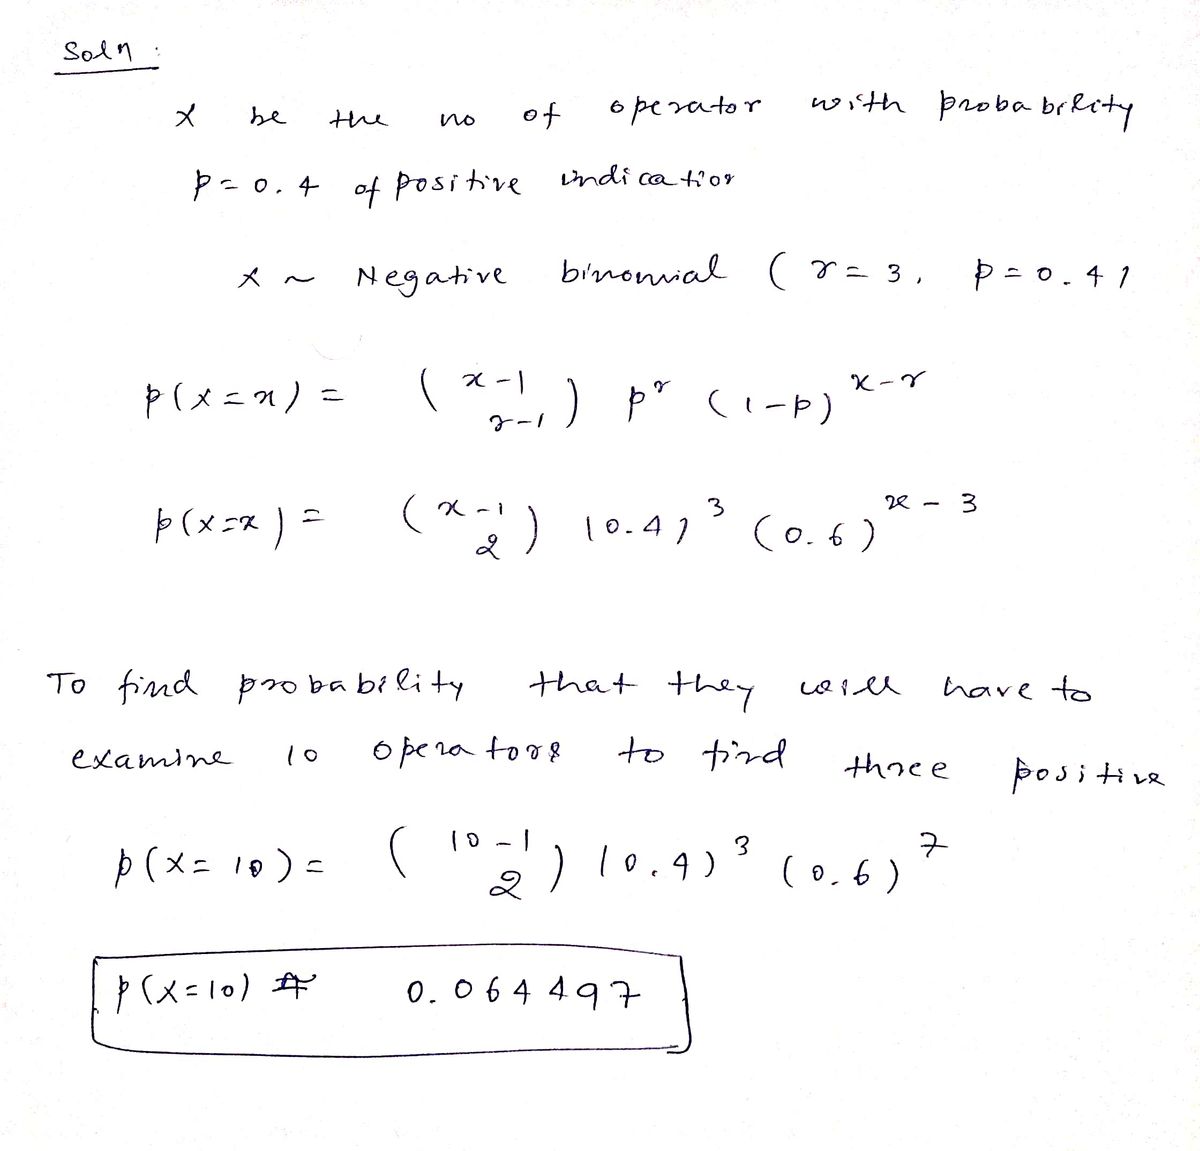 Soln :
X be the no of operator with probability
p = 0.4 of positive indication
X ~ Negative binomial ( r = 3, p = 0.4)
p(X = x) = (x-1 r-1) p^r (1-p)^x-r
p(X = x) = (x-1 2) (0.4)^3 (0.6)^x-3
To find probability that they will have to
examine 10 operators to find three positive
p(X = 10) = (10-1 2) (0.4)^3 (0.6)^7
p(X = 10) = 0.064497